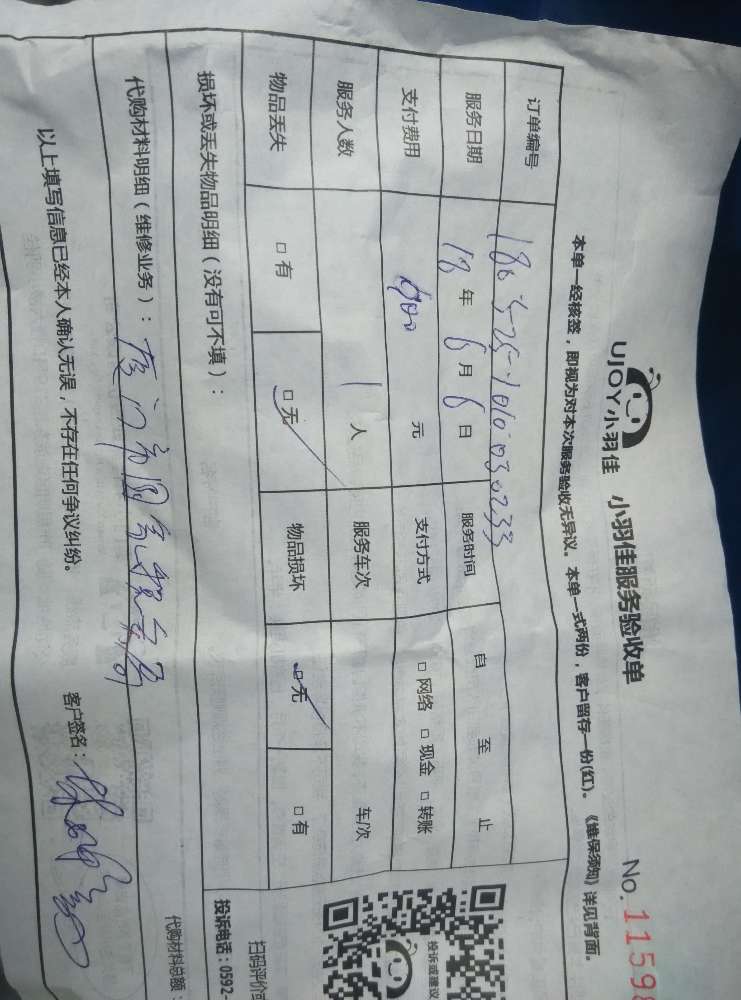 UJOY小羽佳 小羽佳服务验收单 No. 11598
本单一经核签，即视为对本次服务验收无异议。本单一式两份，客户留存一份(红)。《维保须知》详见背面。
订单编号
服务日期 18 年 6 月 6 日 服务时间 自 至 止
支付费用 元 支付方式 □ 网络 □ 现金 □ 转账
服务人数 1 人 服务车次 车/次
物品丢失 □ 有 □ 无 物品损坏 □ 无 □ 有
损坏或丢失物品明细（没有可不填）：
代购材料明细（维修业务）：
代购材料总额：
以上填写信息已经本人确认无误，不存在任何争议纠纷。 客户签名：
投诉或建议
扫码评价
投诉电话：0592-